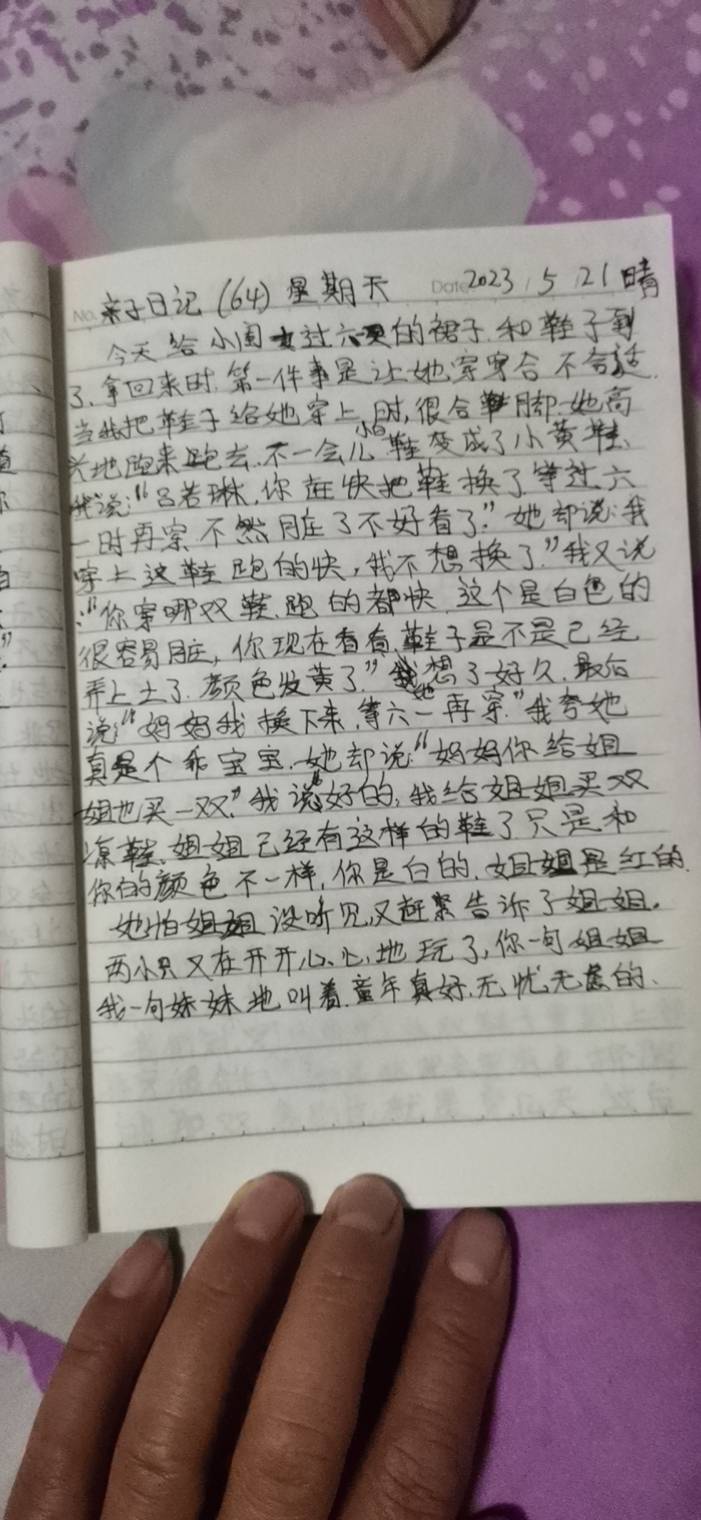 No. 亲子日记 (64) 星期天 Date 2023 5 21 晴
今天给小闺女过六一的裙子和鞋子到
了、拿回来时.第一件事是让她穿穿合不合适.
当我把鞋子给她穿上时,很合脚.她高
兴地跑来跑去.不一会儿小白鞋变成了小黄鞋、
我说:“吕若琳,你赶快把鞋换了等过六
一时再穿不然脏了不好看了.”她却说:我
穿上这鞋跑的快,我不想换了”我又说
:“你穿哪双鞋跑的都快.这个是白色的
很容易脏,你现在看看鞋子是不是已经
弄上土了.颜色发黄了”她想了好久.最后
说“妈妈我换下来,等六一再穿.”我夸她
真是个乖宝宝.她却说:“妈妈你给姐
姐也买一双”我说“好的,我给姐姐买双
凉鞋、姐姐已经有这样的鞋了只是和
你的颜色不一样,你是白的.姐姐是红的.
她怕姐姐没听见又赶紧告诉了姐姐.
两小只又在开开心心地玩了,你一句姐姐
我一句妹妹地叫着.童年真好.无忧无虑的、